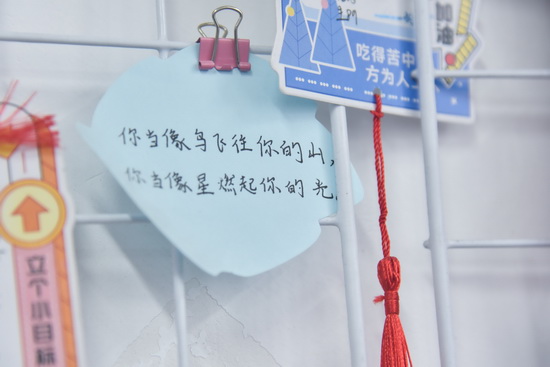 加油
吃得苦中
方为人
你当像鸟飞往你的山,
你当像星燃起你的光,
立个小目标